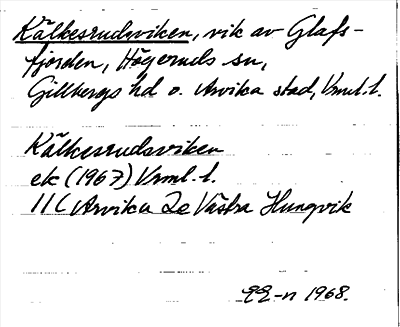 Kälkesrudsviken, vik av Glafs-
fjorden, Högeruds sn,
Gillbergs hd o. Arvika stad, Vrml. l.
Kälkesrudsviken
ek (1967) Vrml. l.
11 C Arvika 2e Västra Hungvik
EE-n 1968.